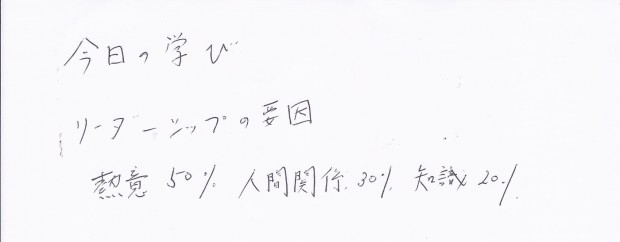 今日の学び
リーダーシップの要因
熱意 50% 人間関係 30% 知識 20%